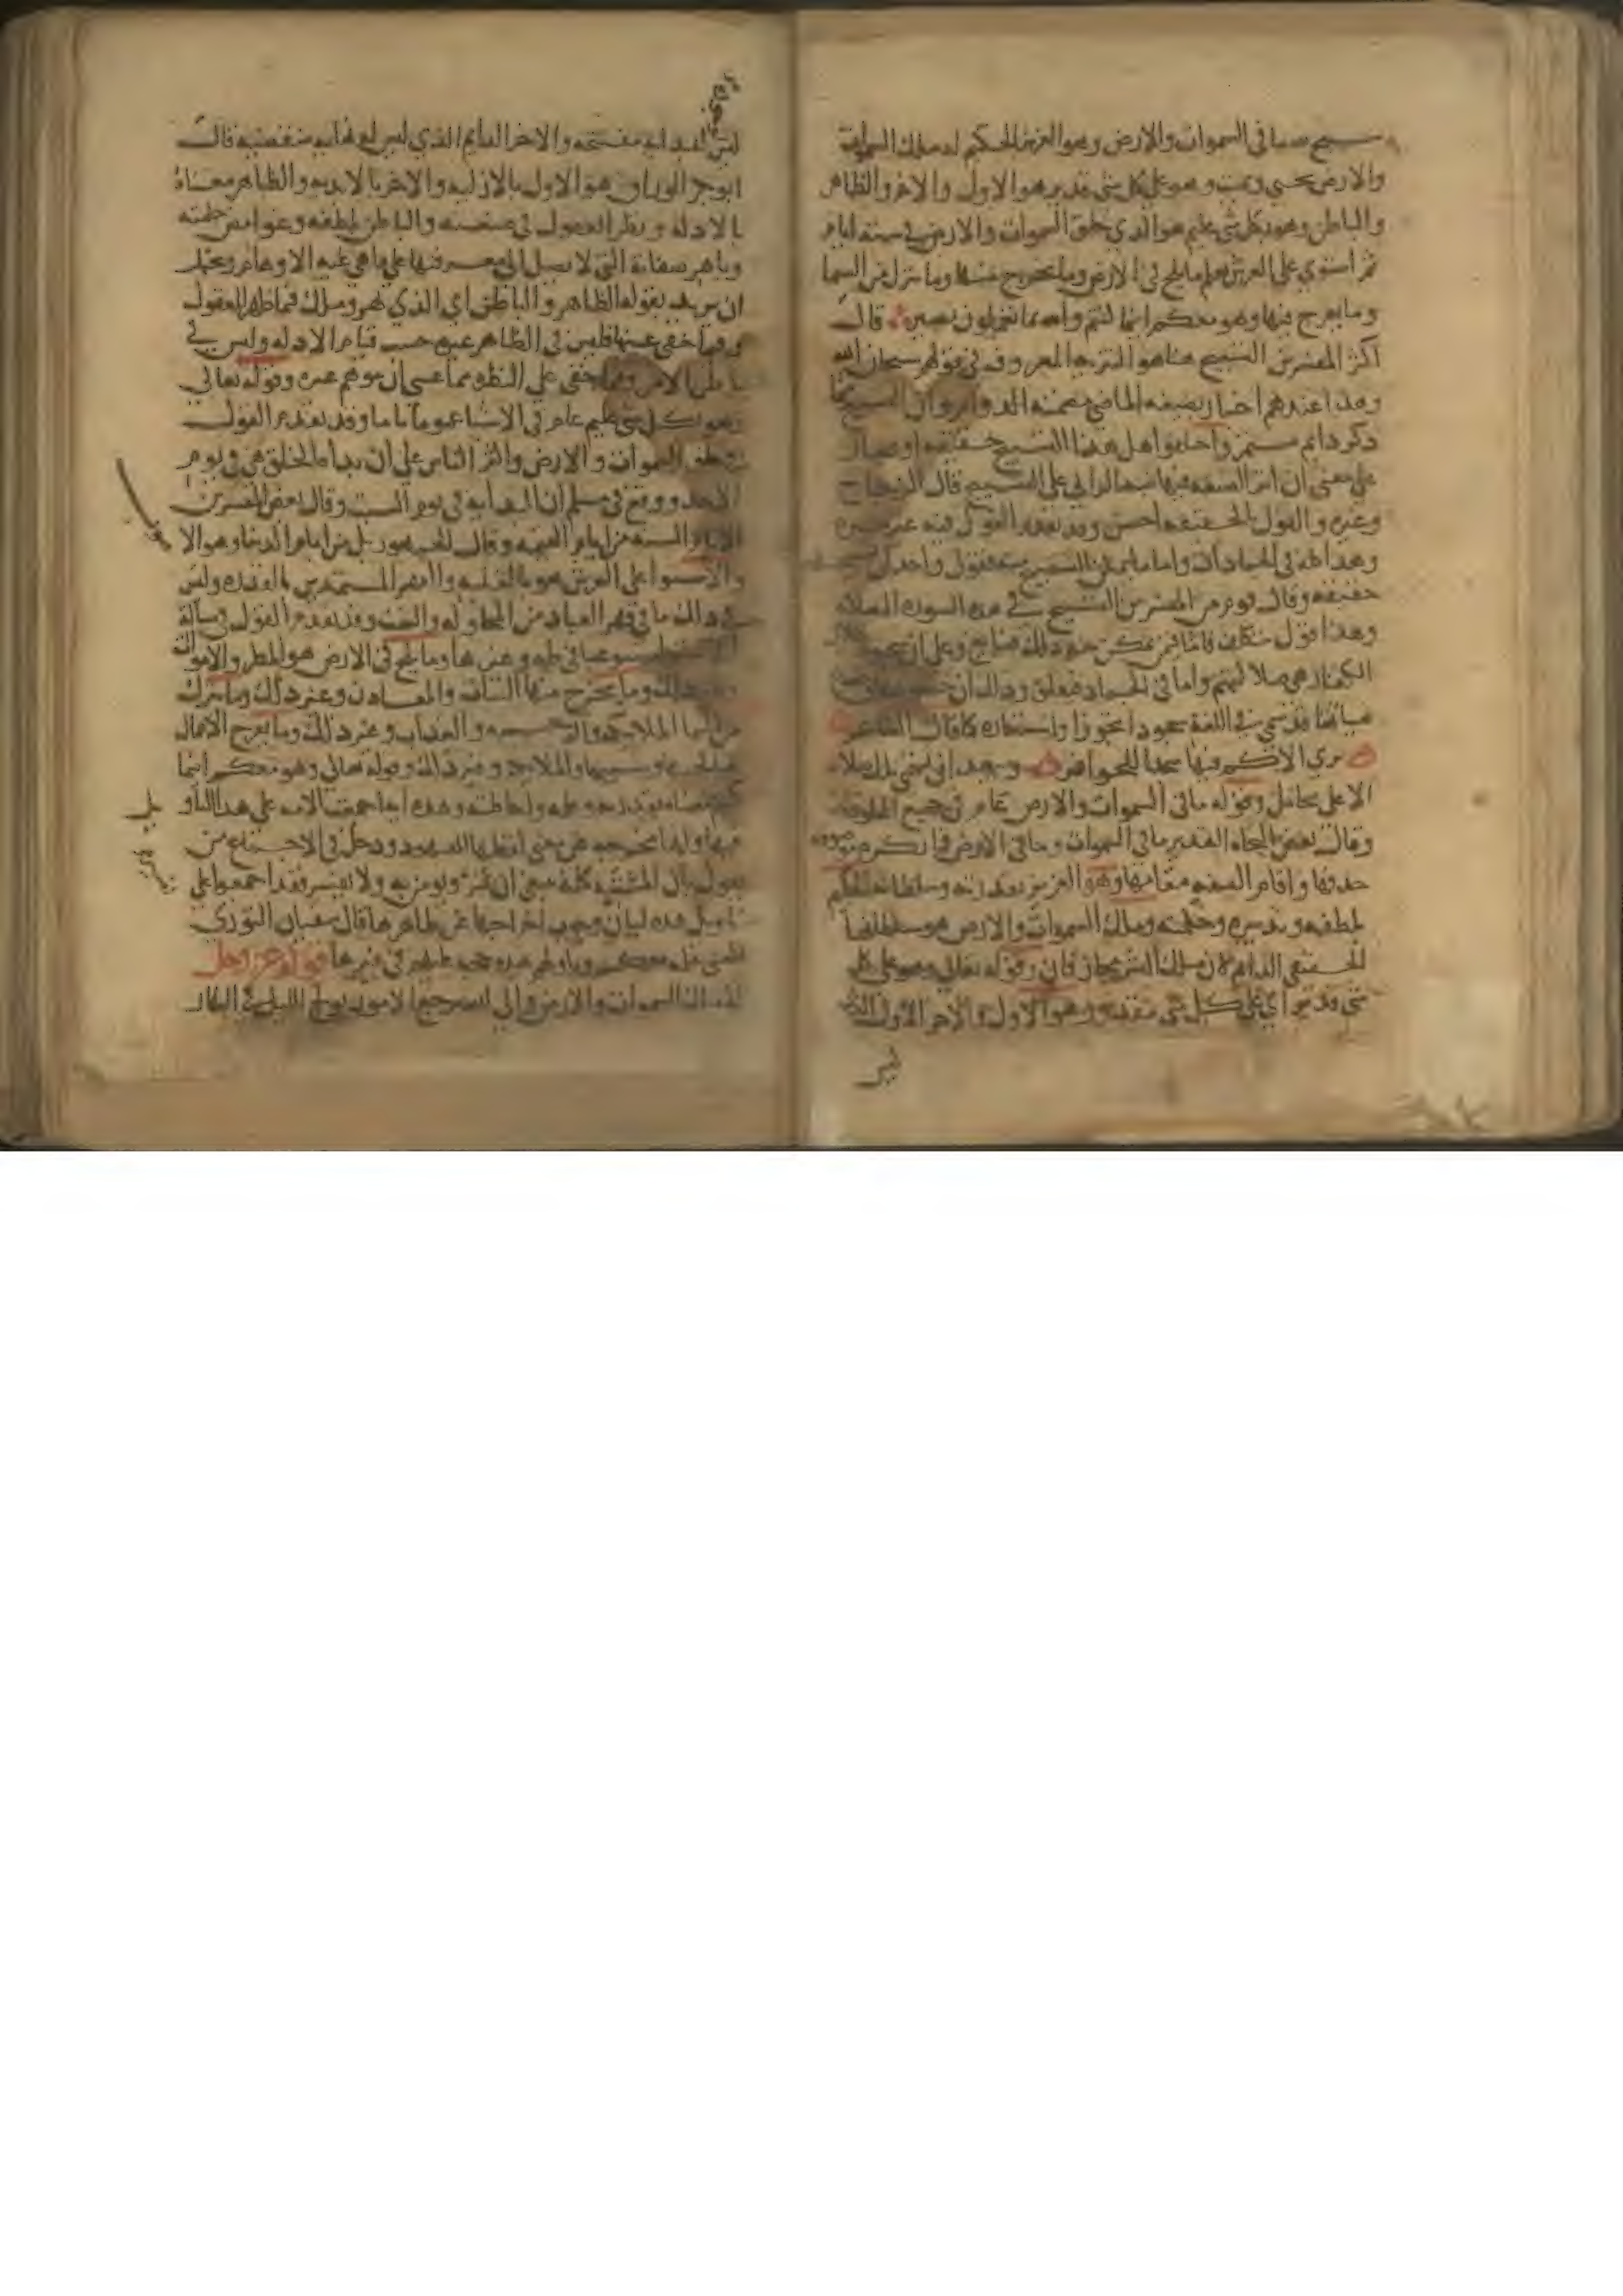 سبح لله ما في السموات والارض وهو العزيز الحكيم له ملك السموات
والارض يحيي ويميت وهو على كل شي قدير هو الاول والاخر والظاهر
والباطن وهو بكل شي عليم هو الذي خلق السموات والارض في ستة ايام
ثم استوي على العرش يعلم ما يلج في الارض وما يخرج منها وما ينزل من السما
وما يعرج فيها وهو معكم اينما كنتم والله بما تعملون بصير قال
اكثر المفسرين التسبيح هنا هو التنزيه المعروف في قولهم سبحان الله
وهذا عندهم اخبار بصيغة الماضي مضمنه الدوام وان التسبيح مما
ذكر دايم مستمر واختلفوا هل هذا التسبيح حقيقة او مجاز
على معنى ان اثر الصنعة فيها تنبه الرائي على التسبيح قال الزجاج
وغيره والقول بالحقيقة احسن وقد تقدم القول فيه غير مرة
وهذا كله في الجمادات واما ما يمكن التسبيح منه فقول واحد ان تسبيحهم
حقيقة وقال قوم من المفسرين التسبيح في هذه السورة الصلاة
وهذا قول متكلف فاما فيمن يمكن منه ذلك فسائغ وعلى ان سجود ظلال
الكفار هي صلاتهم واما في الجماد فيقلق وذلك ان خضوعها وخشوع
هياتها قد سمي في اللغة سجودا تجوزا واستعارة كما قال الشاعر
ترى الاكم فيها سجدا للحوافر ويبعد ان تسمى تلك صلاة
الا على تحامل وقوله ما في السموات والارض عام في جميع المخلوقات
وقال بعض النحاة التقدير ما في السموات وما في الارض فما نكرة موصوفة
حذفها واقام الصفة مقامها وهو العزيز بقدرته وسلطانه الحكيم
بلطفه وتدبيره وحكمته وملك السموات والارض هو سلطانها
الحقيقي الدايم لان ملك البشر مجاز فان وقوله تعالى وهو على كل
شي قدير اي على كل شي مقدور وهو الاول والاخر الاول الذي
ليس
ليس لبدايته مفتتح والاخر الدايم الذي ليس له نهاية منقضية قال
ابو بكر الوراق هو الاول بالازلية والاخر بالابدية والظاهر معناه
بالادلة ونظر العقول في صنعته والباطن بلطفه وغوامض حكمته
وباهر صفاته التي لا يصل الى معرفتها على ما هي عليه الاوهام ويحتمل
ان يريد بقوله الظاهر والباطن اي الذي بهر وملك فيما ظهر للعقول
وفيما خفي عنها فليس في الظاهر غيره حسب قيام الادلة وليس في
باطن الامر وفيما خفي على النظر مما عسى ان يتوهم غيره وقوله تعالى
وهو بكل شي عليم عام في الاشيا عموما تاما وقد تقدم القول
في خلق السموات والارض واكثر الناس على ان بداة الخلق هي في يوم
الاحد ووقع في مسلم ان البداية في يوم السبت وقال بعض المفسرين
الايام الستة من ايام القيمة وقال الجمهور بل من ايام الدنيا وهو الا
صوب
والاستوا على العرش هو بالغلبة والقهر المستمرين بالقدرة وليس
في ذلك ما في قهر العباد من المحاولة والتعب وقد تقدم القول في مسالة
الاستوا مستوعبا في طه وغيرها وما يلج في الارض هو المطر والاموات
وغير ذلك وما يخرج منها النبات والمعادن وغير ذلك وما ينزل
من السما الملايكة والرحمة والعذاب وغير ذلك وما يعرج الاعمال
صالحها وسييها والملايكة وغير ذلك وقوله تعالى وهو معكم اينما
كنتم معناه بقدرته وعلمه واحاطته وهذه اية اجمعت الامة على هذا التاو
يل
فيها وانها مخرجة عن معنى لفظها المعهود ودخل في الاجماع من
يقول بان المشتبه كله ينبغي ان يمر ويومن به ولا يفسر فقد اجمعوا على
تاويل هذه لبيان وجوب اخراجها عن ظاهرها قال سفيان الثوري
المعنى علمه معكم وتاولهم هذه حجة عليهم في غيرها قوله عز وجل
له ملك السموات والارض والى الله ترجع الامور يولج الليل في النهار